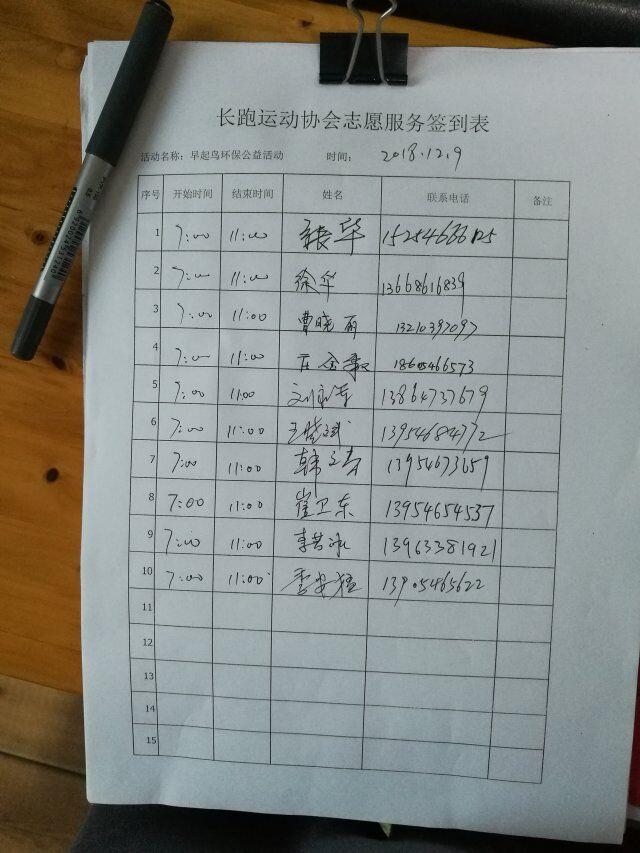 长跑运动协会志愿服务签到表
活动名称：早起鸟环保公益活动 时间：2018.12.9
序号 开始时间 结束时间 姓名 联系电话 备注
1 7:00 11:00 张华
2 7:00 11:00 徐华 13668616839
3 7:00 11:00 曹晓丽 13210397097
4 7:00 11:00 18605466573
5 7:00 11:00 13864737679
6 7:00 11:00 王晓斌 13954684772
7 7:00 11:00 13954673659
8 7:00 11:00 崔卫东 13954654537
9 7:00 11:00 13963381921
10 7:00 11:00 13905465622
11
12
13
14
15